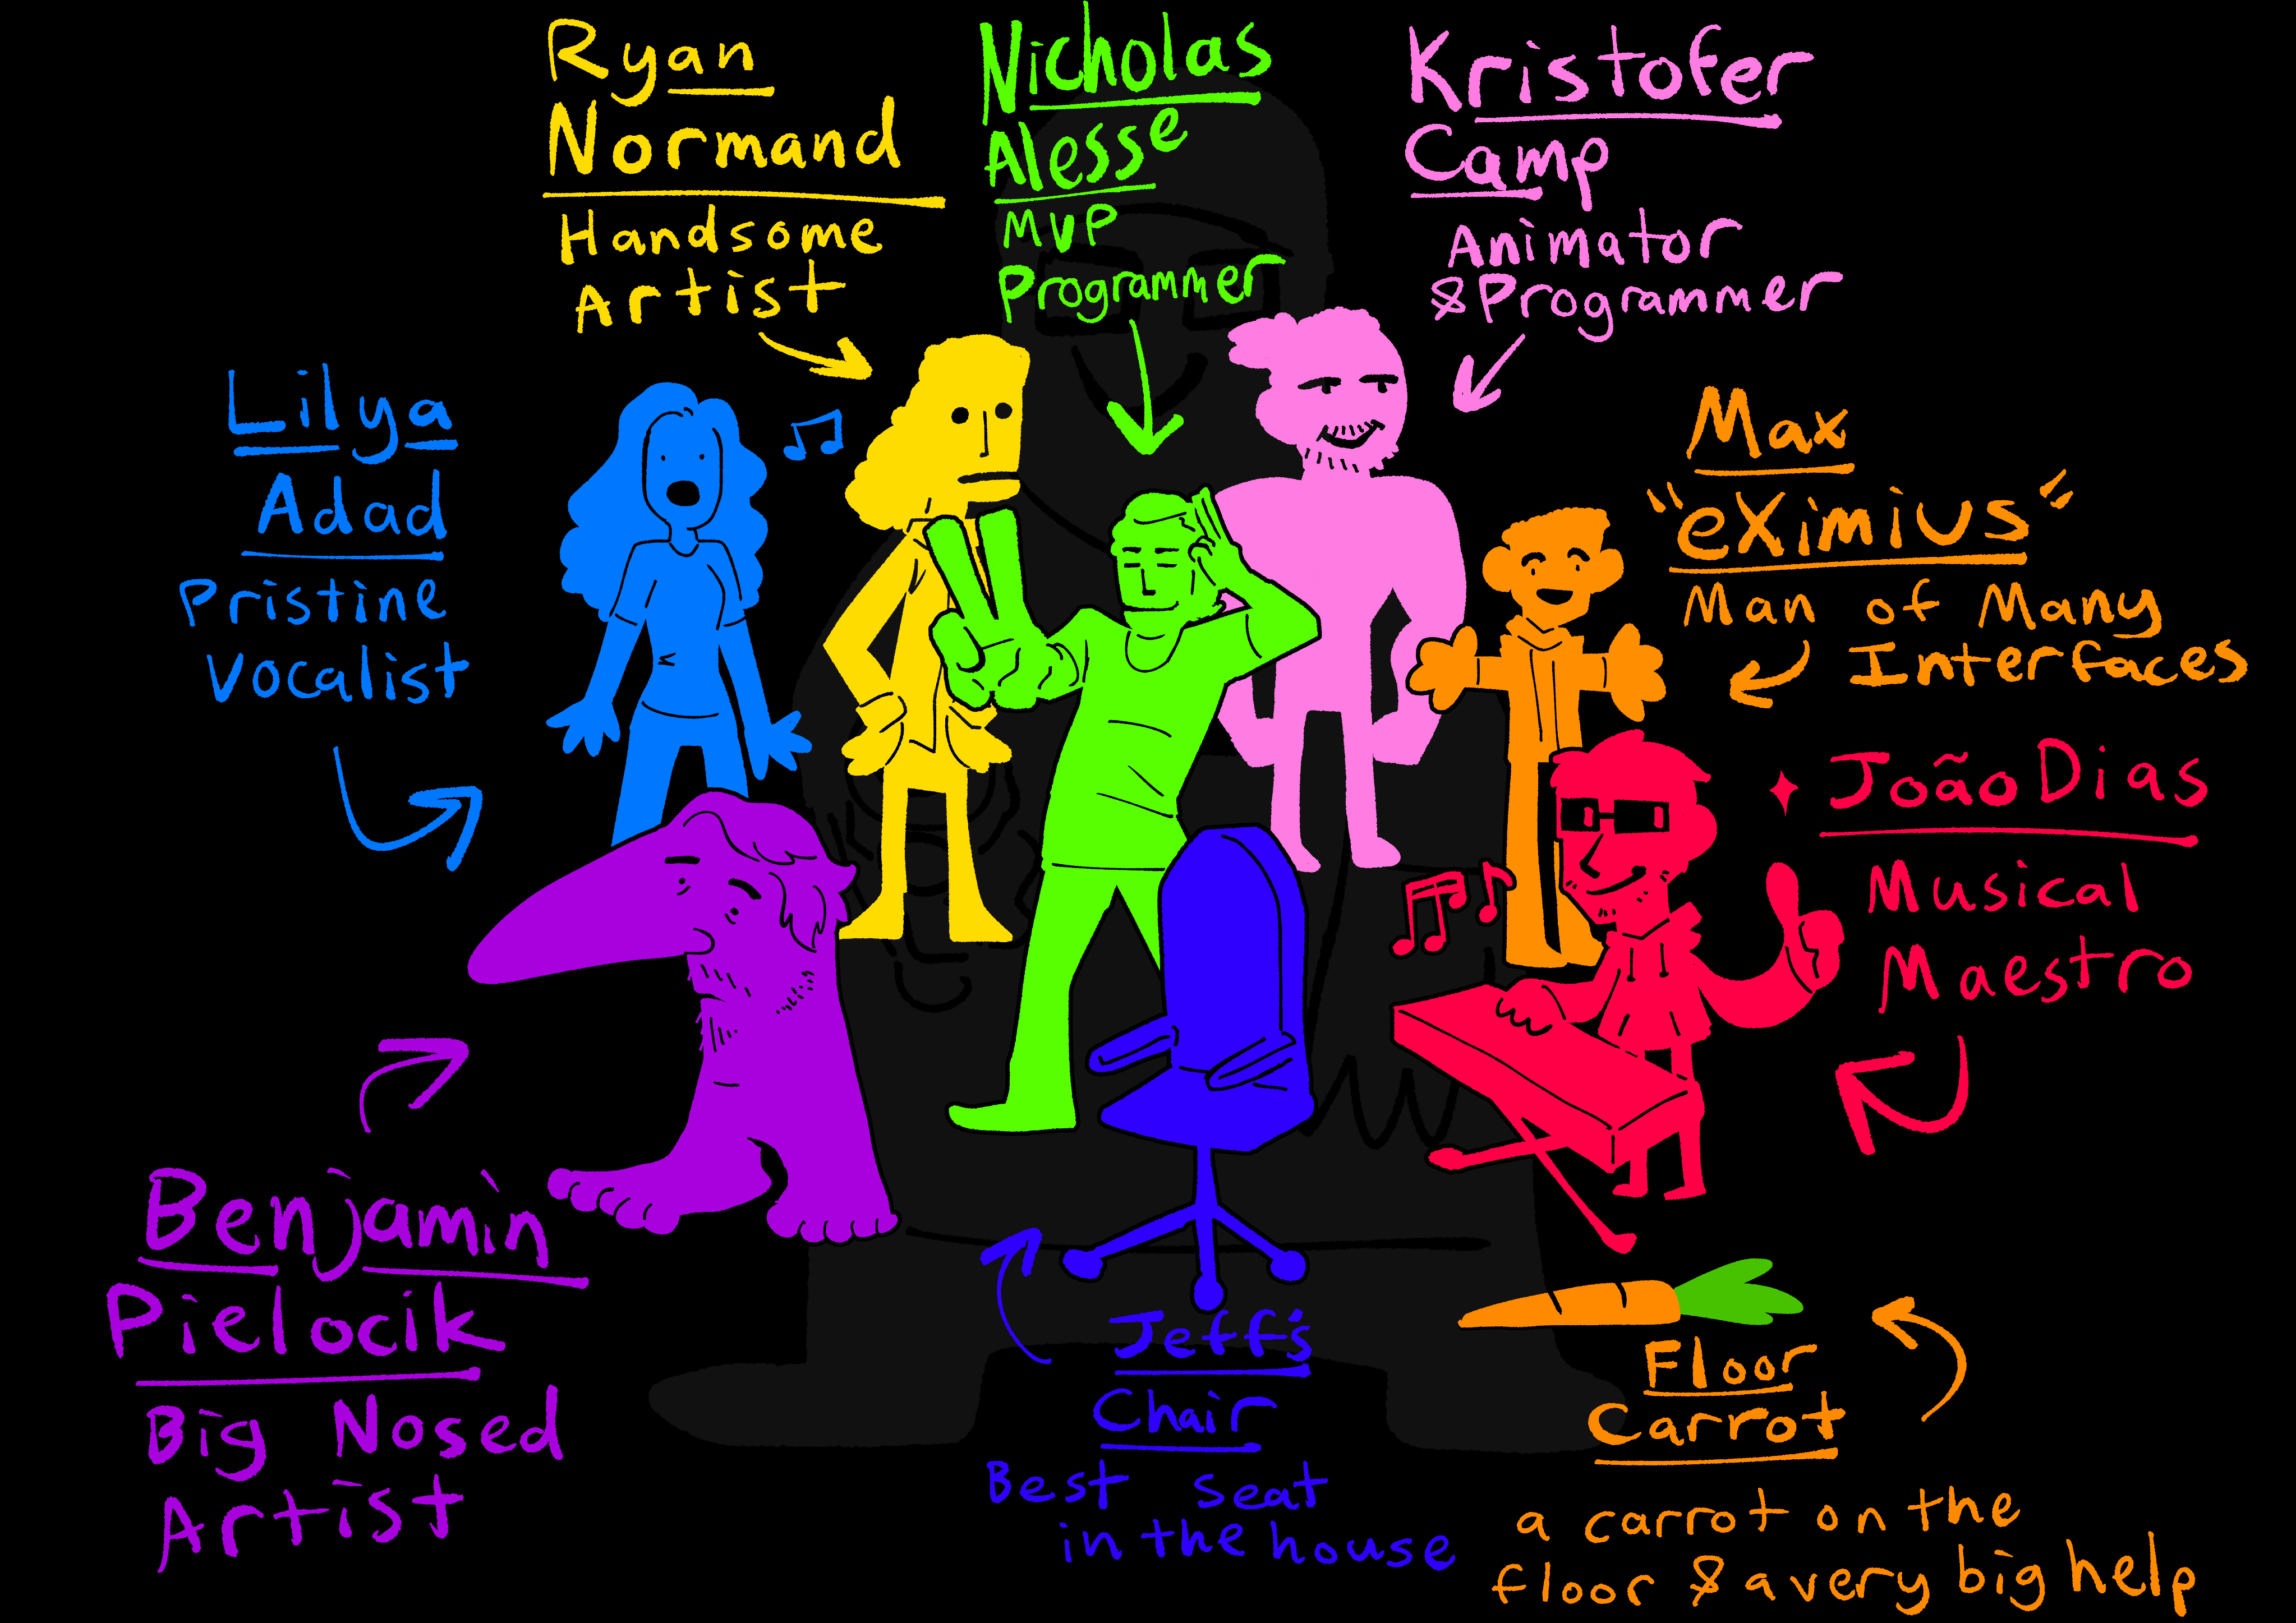 Ryan
Normand
Handsome
Artist
Nicholas
Alesse
MVP
Programmer
Kristofer
Camp
Animator
& Programmer
Lilya
Adad
Pristine
Vocalist
Max
"eXimius"
Man of Many
Interfaces
João Dias
Musical
Maestro
Benjamin
Pielocik
Big Nosed
Artist
Jeff's
Chair
Best seat
in the house
Floor
Carrot
a carrot on the
floor & a very big help